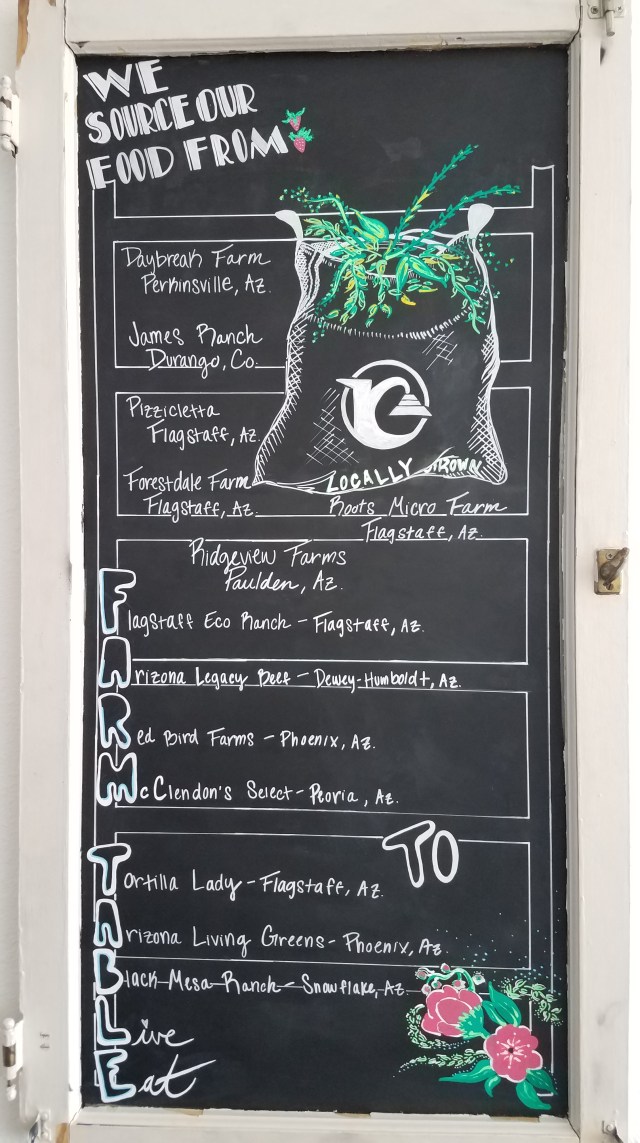 WE
SOURCE OUR
FOOD FROM
Daybreak Farm
Perkinsville, Az.
James Ranch
Durango, Co.
Pizzicletta
Flagstaff, Az.
Forestdale Farm
Flagstaff, Az.
LOCALLY GROWN
Roots Micro Farm
Flagstaff, Az.
Ridgeview Farms
Paulden, Az.
Flagstaff Eco Ranch - Flagstaff, Az.
Arizona Legacy Beef - Dewey-Humboldt, Az.
Red Bird Farms - Phoenix, Az.
McClendon's Select - Peoria, Az.
TO
Tortilla Lady - Flagstaff, Az.
Arizona Living Greens - Phoenix, Az
Black Mesa Ranch - Snowflake, Az.
Live
Eat